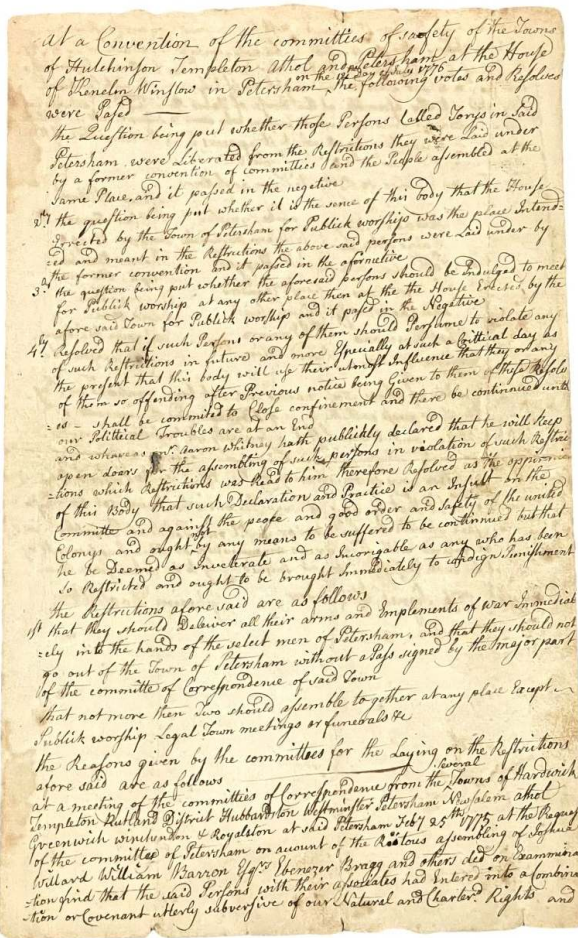 At a Convention of the committies of saefety of the Towns
of Hutchinson Templeton Athol and Petersham at the House
on the 1st day of July 1776
of Kenelm Winslow in Petersham The following votes and Resolves
were Pased
the Question being put whether those Persons Called Torys in Said
Petersham were Liberated from the Restrictions they were Laid under
by a former convention of committies and the People assembled at the
Same Place, and it passed in the negetive
2ly the question being put whether it is the sence of this body that the House
Errected by the Town of Petersham for Publick worships was the place Intend=
=ed and meant in the Restrictions the above said persons were Laid under by
the former convention and it passed in the afirmetive
3d the question being put whether the aforesaid persons should be Indulged to meet
for Publick worship at any other place then at the the House Erected by the
afore said Town for Publick worship and it pased in the Negative
4ly Resolved that if such Persons or any of them should Perfume to violate any
of such Restrictions in future and more Especially at such a Critical day as
the present that this body will use their utmost Influence that they or any
of them so offending after Previous notice being Given to them of these Resolv
=es - shall be commited to Close confinement and there be continued untill
our Polittical Troubles are at an End
and whareas Mr. Aaron Whitney hath publickly declared that he will keep
open doers for the assembling of such persons in violation of such Restric
=tions which Restrictions was Read to him therefore Resolved as the oppinion
of this Body that such Declaration and Practice is an Insult on the
Committe and against the peace and good order and Safety of the united
Colonys and ought not by any means to be suffered to be continued but that
he be Deemed as Inveterate and as Incorigable as any who has been
so Restricted and ought to be brought Immediately to condign Punishment
the Restrictions afore said are as follows
1st that they should Deliver all their arms and Emplements of war Immediat
=ely into the hands of the select men of Petersham, and that they should not
go out of the Town of Petersham without a Pass signed by the major part
of the committe of Correspondence of said Town
that not more then Two should assemble to gether at any place Except
Publick worship Legal Town meetings or funerals &c
the Reasons given by the committees for the Laying on the Restrictions
afore said are as follows
at a meeting of the committies of Correspondence from the Several Towns of Hardwick
Templeton Rutland District Hubbardston Westminster Petersham Newsalem athol
Greenwich winchendon & Royalston at said Petersham Feby 25th 1775 at the Request
of the committee of Petersham on account of the Riotous assembling of Joshua
Willard William Barron Esqrs Ebenezer Bragg and others ded on Examina
=tion find that the said Persons with their associates had Entered into a Combina
=tion or Covenant utterly subversive of our Natural and Charterd Rights and